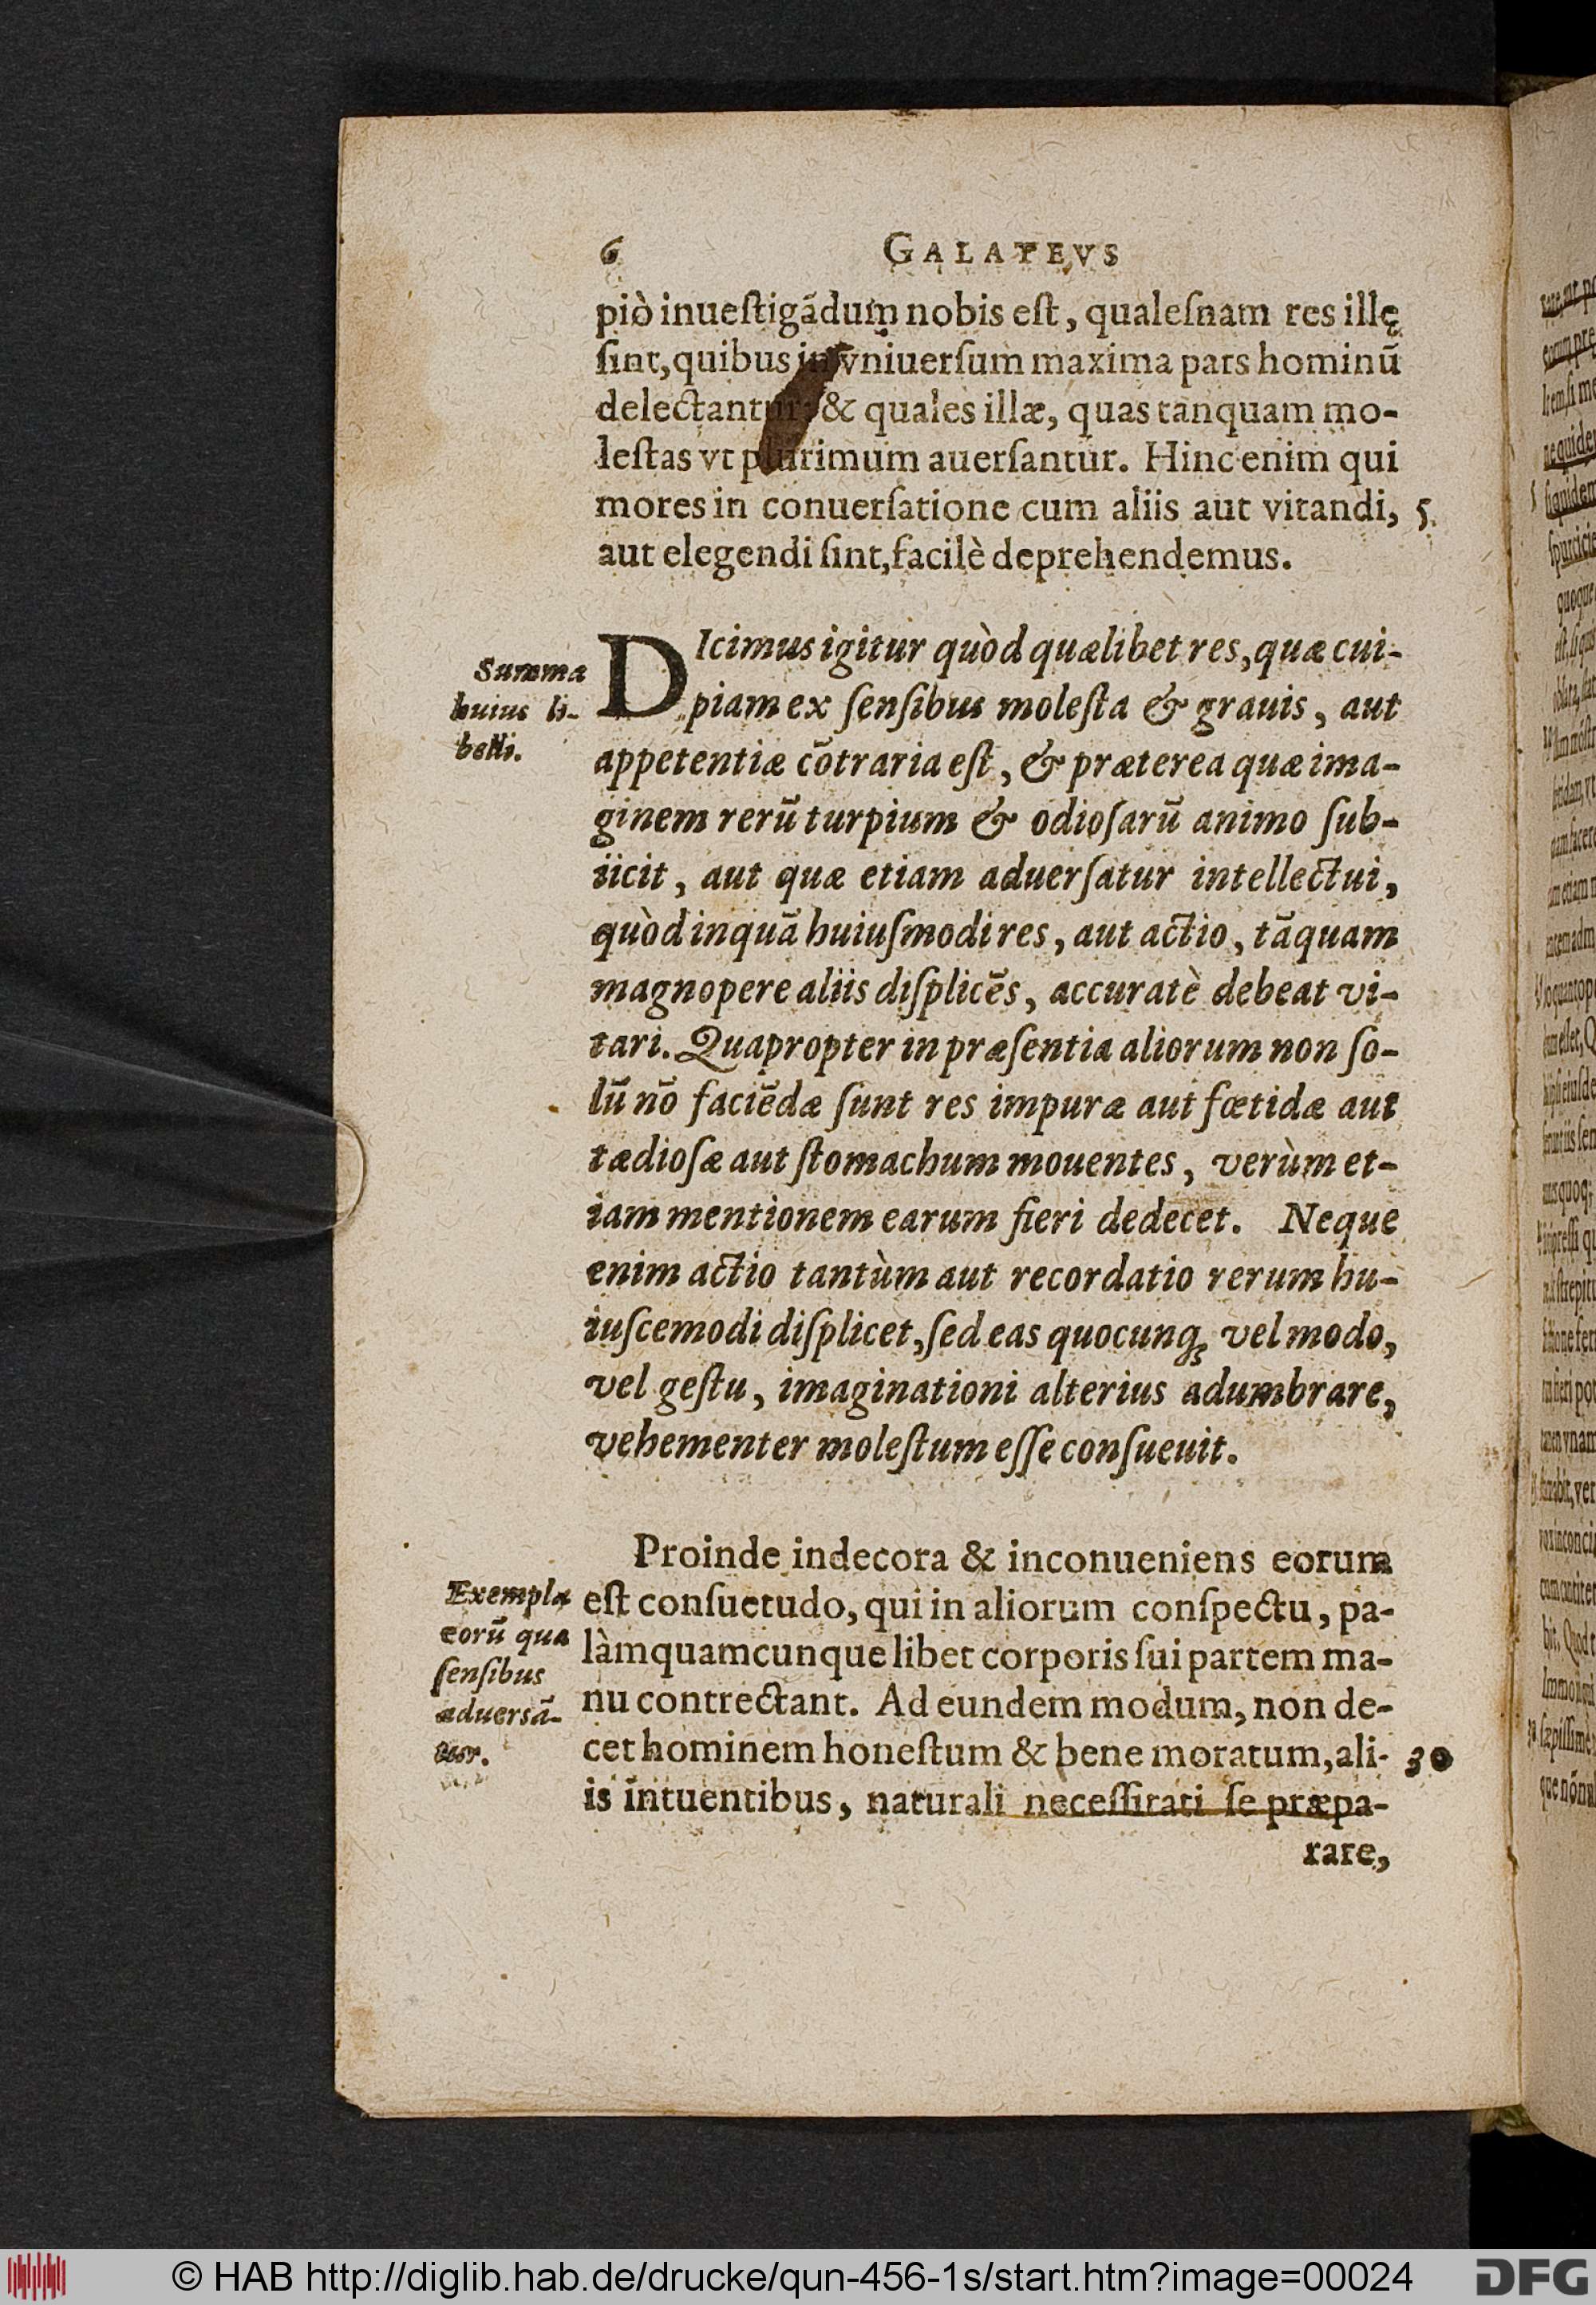 6 GALATEVS
piò inueſtigādum nobis eſt, qualeſnam res illę
ſint, quibus in vniuerſum maxima pars hominū
delectantur: & quales illæ, quas tanquam mo-
leſtas vt plurimum auerſantur. Hinc enim qui
mores in conuerſatione cum aliis aut vitandi, 5
aut elegendi ſint, facilè deprehendemus.
Summa
huius li-
belli.
DIcimus igitur quòd quælibet res, quæ cui-
piam ex ſenſibus moleſta & grauis, aut
appetentiæ cōtraria eſt, & præterea quæ ima-
ginem rerū turpium & odioſarū animo ſub-
iicit, aut quæ etiam aduerſatur intellectui,
quòd inquā huiuſmodi res, aut actio, tāquam
magnopere aliis diſplicēs, accuratè debeat vi-
tari. Quapropter in præſentia aliorum non ſo-
lū nō faciēdæ ſunt res impuræ aut fœtidæ aut
tædioſæ aut ſtomachum mouentes, verùm et-
iam mentionem earum fieri dedecet. Neque
enim actio tantùm aut recordatio rerum hu-
iuſcemodi diſplicet, ſed eas quocunq; vel modo,
vel geſtu, imaginationi alterius adumbrare,
vehementer moleſtum eſſe conſueuit.
Exempla
eorū qua
ſenſibus
aduersā-
tur.
Proinde indecora & inconueniens eorum
eſt conſuetudo, qui in aliorum conſpectu, pa-
làm quamcunque libet corporis ſui partem ma-
nu contrectant. Ad eundem modum, non de-
cet hominem honeſtum & bene moratum, ali- 30
is intuentibus, naturali neceſſitati ſe præpa-
rare,
© HAB http://diglib.hab.de/drucke/qun-456-1s/start.htm?image=00024
DFG